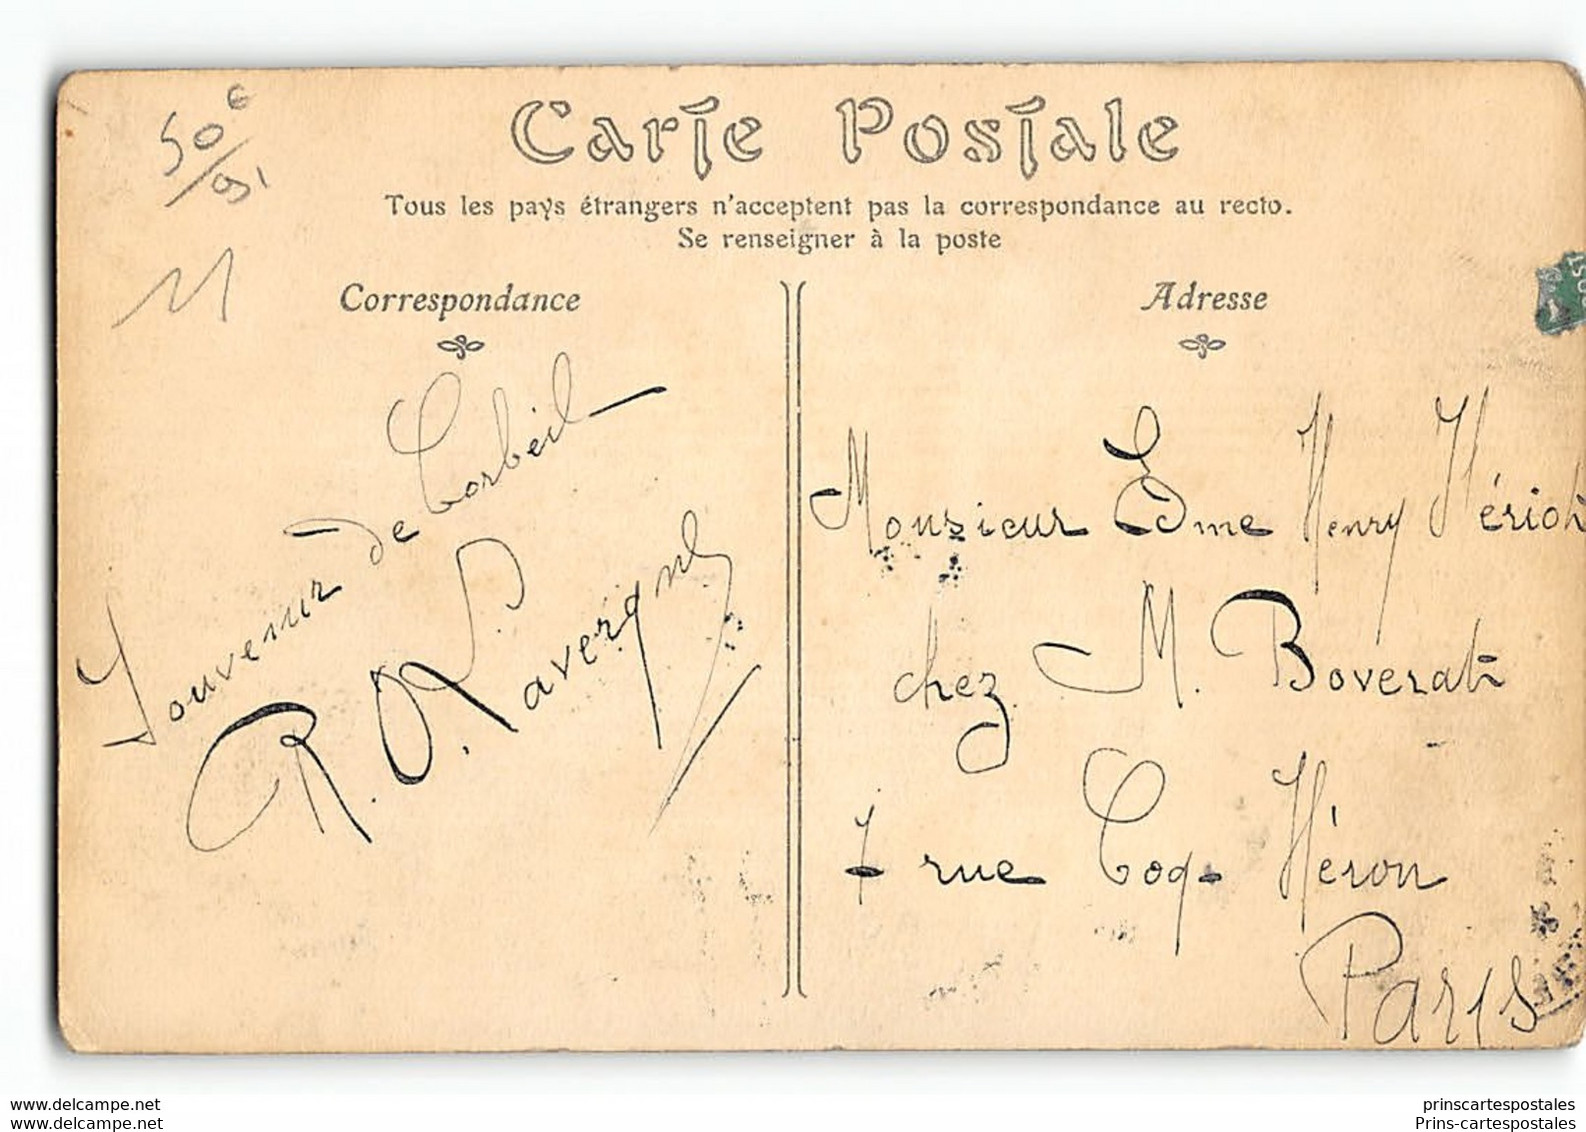 50€/91
Carte Postale
Tous les pays étrangers n'acceptent pas la correspondance au recto.
Se renseigner à la poste
Correspondance
Souvenir de Corbeil
R. O. Lavergne
Adresse
Monsieur Edme Henry Hérioh
chez M. Boverat
7 rue Coq-Héron
Paris
www.delcampe.net
www.delcampe.net
prinscartespostales
Prins-cartespostales